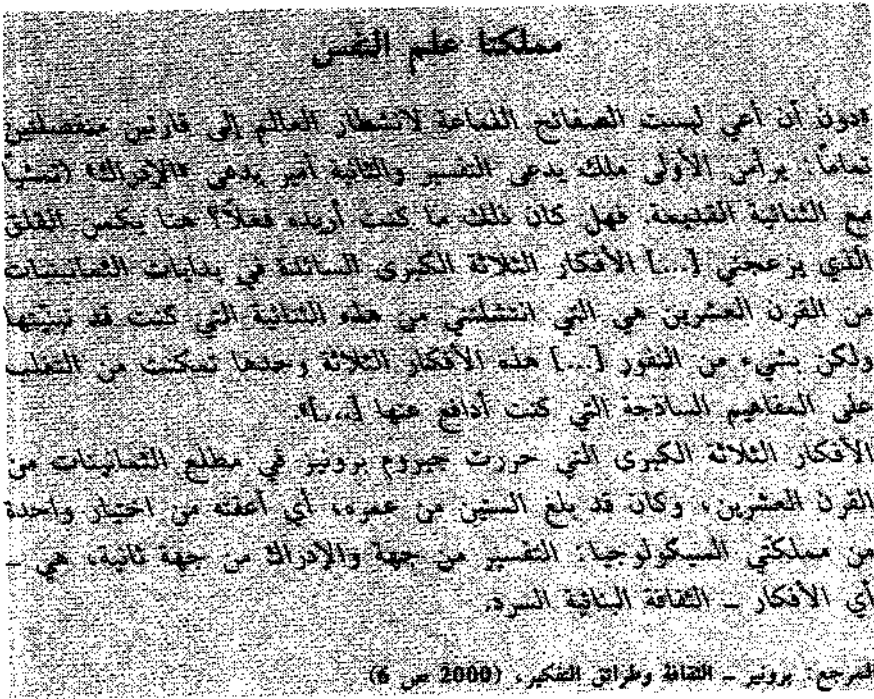 مملكتا علم النفس
«دون أن أعي لبست الصفائح اللماعة لانشطار العالم إلى قارتين منفصلتين
تماماً: يرأس الأولى ملك يدعى التفسير والثانية أمير يدعى «الإدراك» (تمشياً
مع الثنائية القديمة. فهل كان ذلك ما كنت أريده فعلاً؟ هنا يكمن القلق
الذي يزعجني [...] الأفكار الثلاثة الكبرى السائدة في بدايات الثمانينات
من القرن العشرين هي التي انتشلتني من هذه الثنائية التي كنت قد تبنيتها
ولكن بشيء من النفور [...] هذه الأفكار الثلاثة وحدها تمكنت من التغلب
على المفاهيم الساذجة التي كنت أدافع عنها [...]».
الأفكار الثلاثة الكبرى التي حررت جيروم برونير في مطلع الثمانينات من
القرن العشرين، وكان قد بلغ الستين من عمره، أي أعفته من اختيار واحدة
من مملكتي السيكولوجيا: التفسير من جهة والإدراك من جهة ثانية، هي –
أي الأفكار – الثقافة البنائية السرد.
المرجع: برونير – الثقافة وطرائق التفكير، (2000 ص 6)